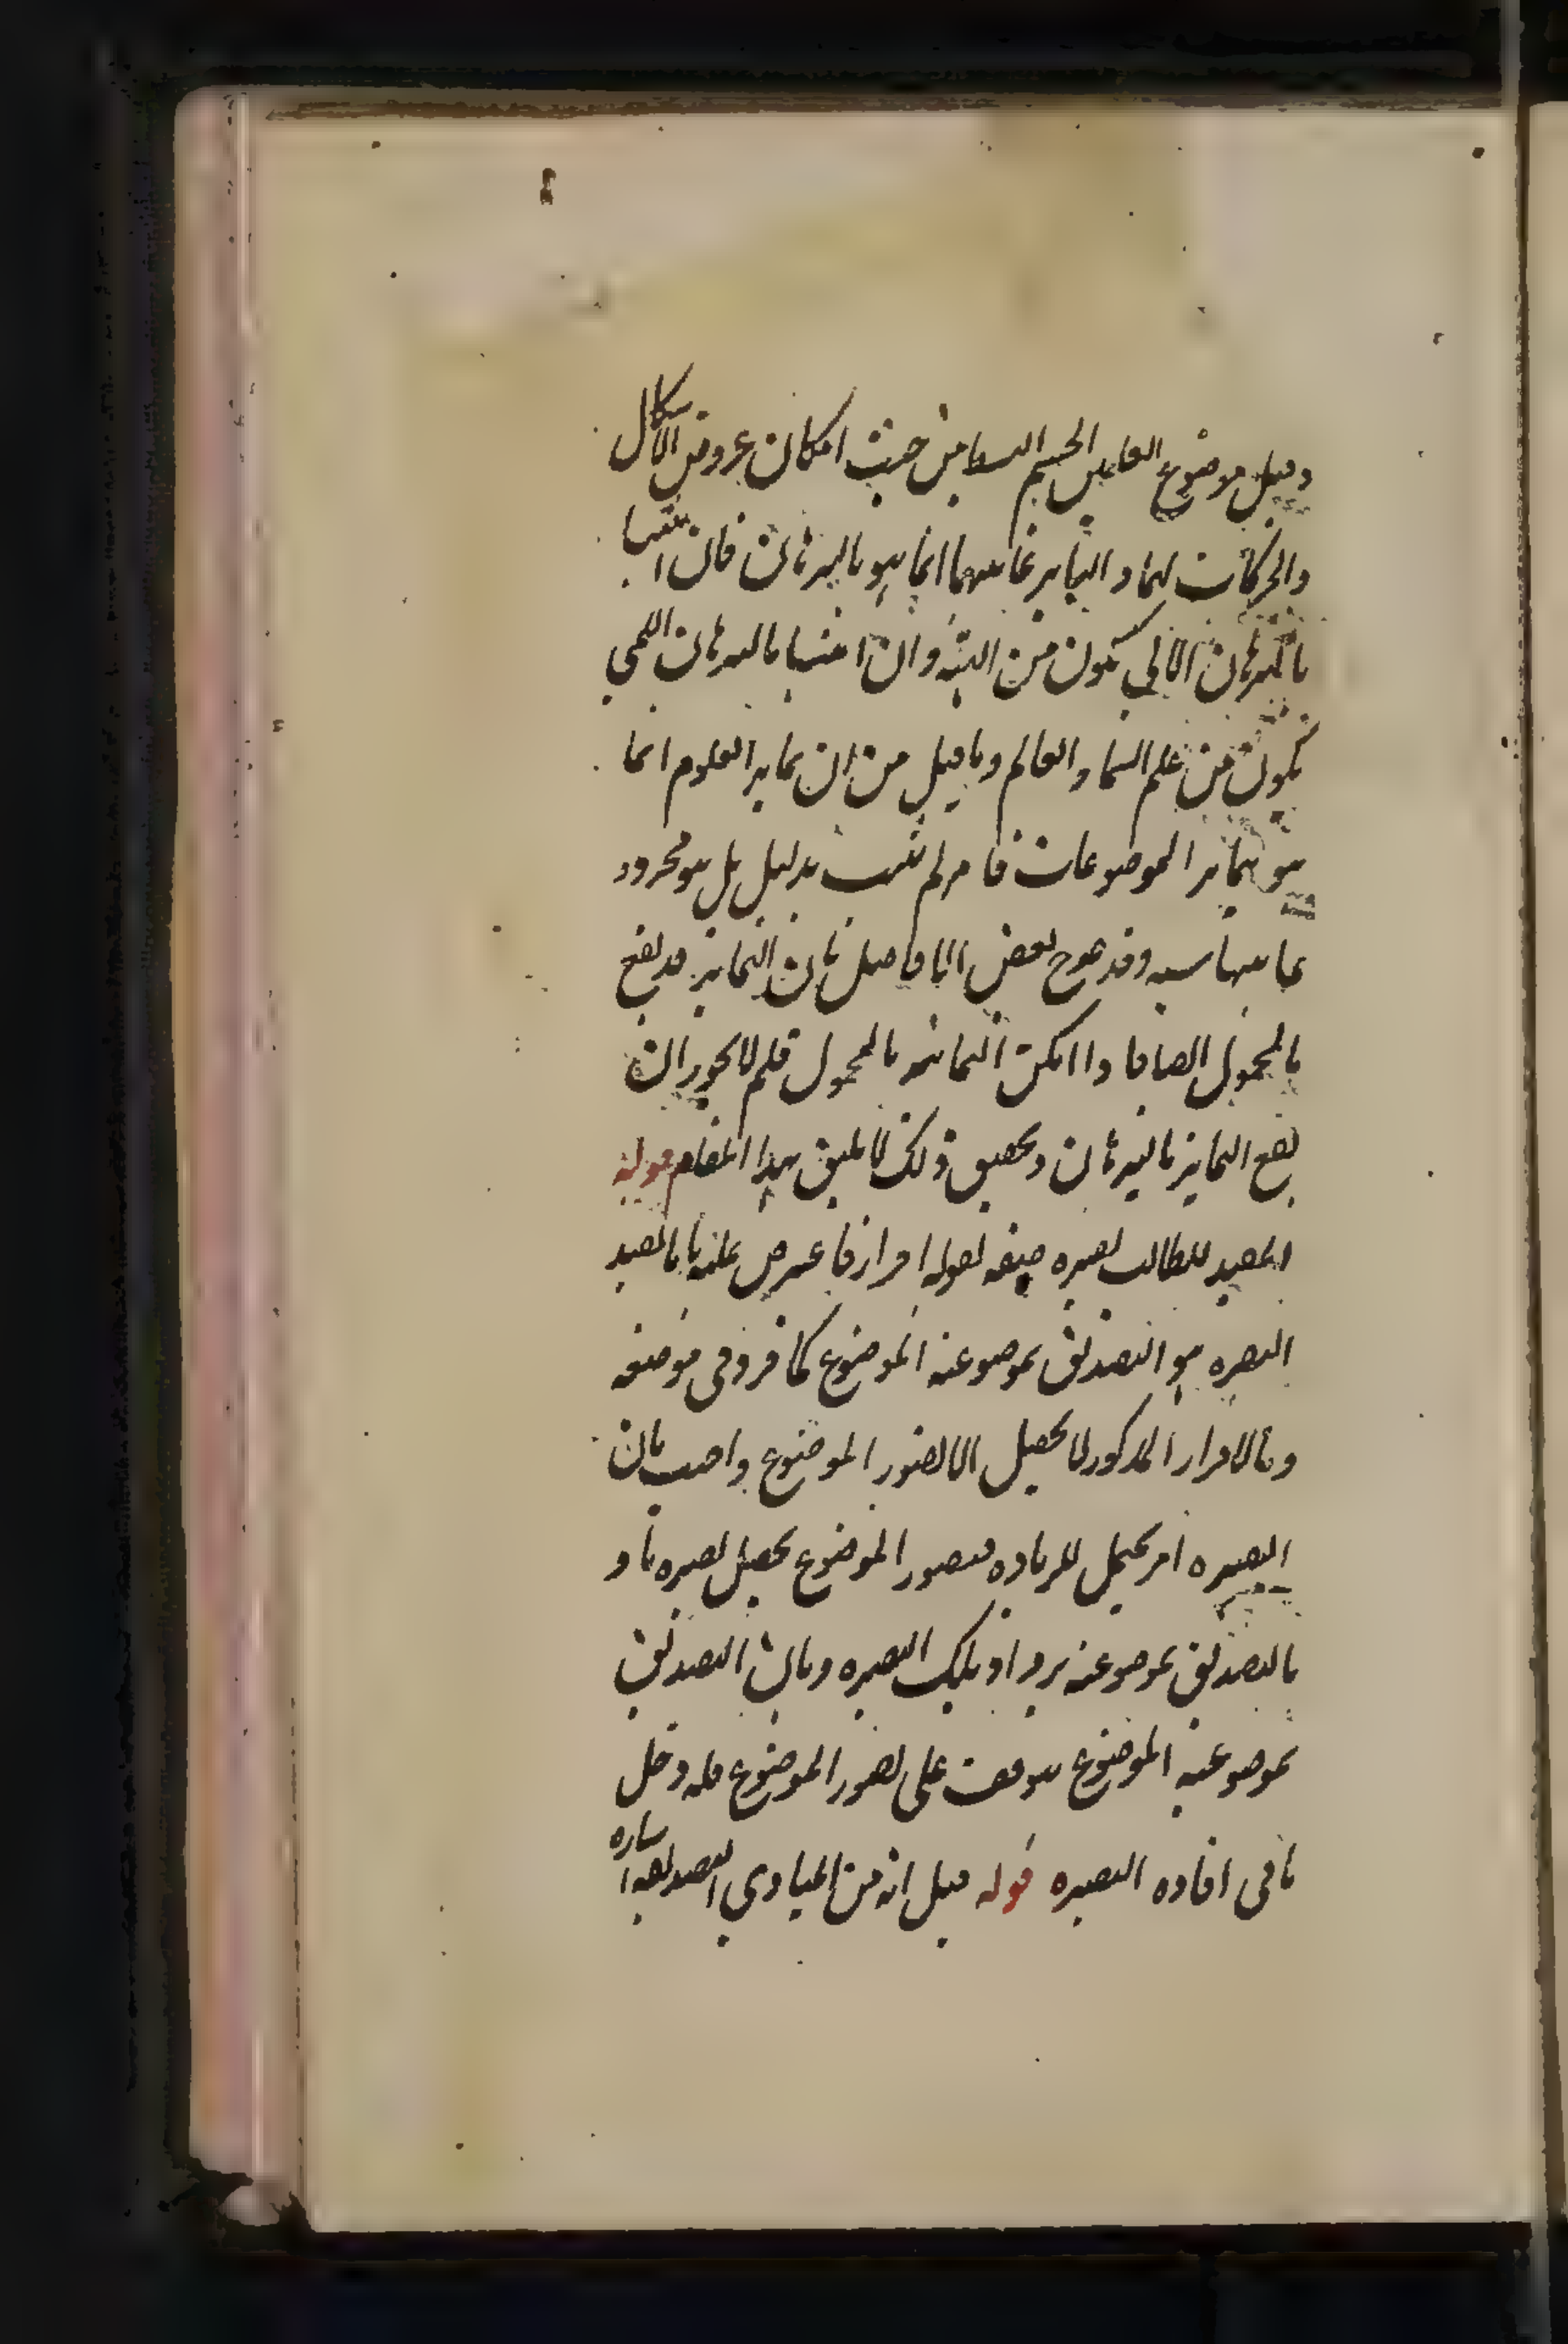 وقيل موضوع العلمين الجسم البسيط من حيث امكان عروض الاشكال
والحركات لهما والتمايز بينهما انما هو بالبرهان فان اثبتا
بالبرهان الاني يكون من الهيئة وان اثبتا بالبرهان اللمي
يكون من علم السماء والعالم وما قيل من ان تمايز العلوم انما
هو بتمايز الموضوعات فامر لم يثبت بدليل بل هو مجرد
مناسبة وقد صرح بعض الافاضل بان التمايز قد يقع
بالمحمول ايضا فاذا امكن التمايز بالمحمول فلم لا يجوز ان
يقع التمايز بالبرهان وتحقيق ذلك لا يليق بهذا المقام قوله
المفيد للطالب بصيره صفة لقوله افراز فاعترض عليه بان المفيد
البصيره هو التصديق بموضوعية الموضوع كما قرر في موضعه
وبالافراز المذكور لا يحصل الا تصور الموضوع واجيب بان
البصيره امر يحتمل الزياده فبتصور الموضوع يحصل بصيره ما و
بالتصديق بموضوعيته يزداد تلك البصيره وبان التصديق
بموضوعية الموضوع يتوقف على تصور الموضوع فله دخل
ما في افاده البصيره قوله قيل انه من المبادي التصديقية اشاره